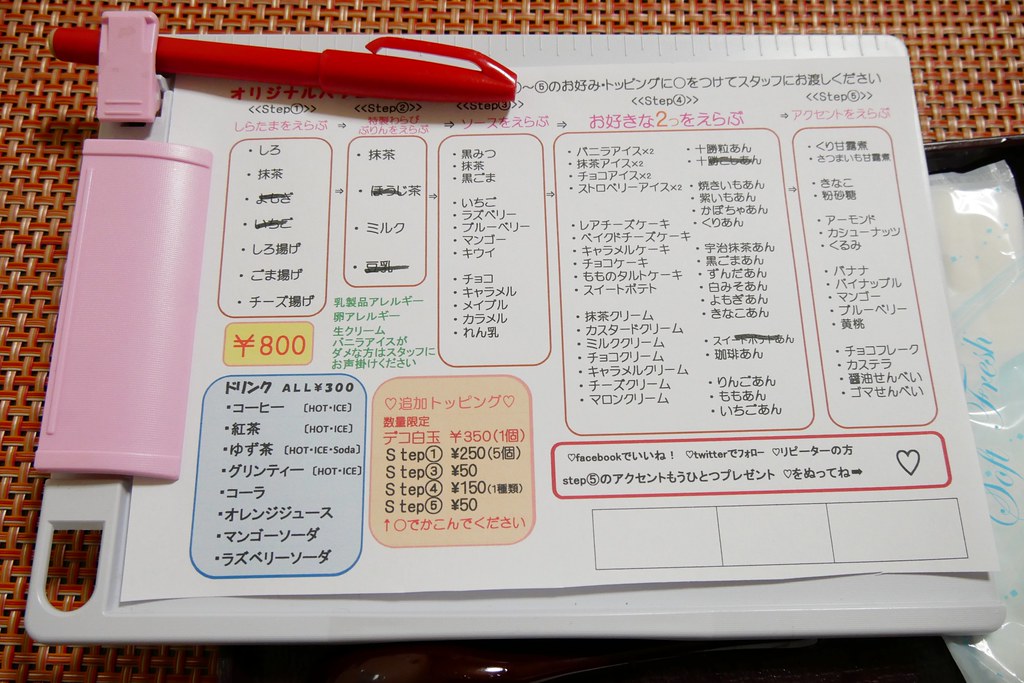 オリジナル
⑤のお好み・トッピングに○をつけてスタッフにお渡しください
<<Step①>>
しらたまをえらぶ
・しろ
・抹茶
・よもぎ
・いちご
・しろ揚げ
・ごま揚げ
・チーズ揚げ
¥800
⇒
<<Step②>>
特製わらび
ぷりんをえらぶ
・抹茶
・ほうじ茶
・ミルク
・豆乳
乳製品アレルギー
卵アレルギー
生クリーム
バニラアイスが
ダメな方はスタッフに
お声掛けください
⇒
<<Step③>>
ソースをえらぶ
・黒みつ
・抹茶
・黒ごま
・いちご
・ラズベリー
・ブルーベリー
・マンゴー
・キウイ
・チョコ
・キャラメル
・メイプル
・カラメル
・れん乳
⇒
<<Step④>>
お好きな2つをえらぶ
・バニラアイス×2
・抹茶アイス×2
・チョコアイス×2
・ストロベリーアイス×2
・レアチーズケーキ
・ベイクドチーズケーキ
・キャラメルケーキ
・チョコケーキ
・もものタルトケーキ
・スイートポテト
・抹茶クリーム
・カスタードクリーム
・ミルククリーム
・チョコクリーム
・キャラメルクリーム
・チーズクリーム
・マロンクリーム
・十勝粒あん
・十勝こしあん
・焼きいもあん
・紫いもあん
・かぼちゃあん
・くりあん
・宇治抹茶あん
・黒ごまあん
・ずんだあん
・白みそあん
・よもぎあん
・きなこあん
・スイートポテトあん
・珈琲あん
・りんごあん
・ももあん
・いちごあん
⇒
<<Step⑤>>
アクセントをえらぶ
・くり甘露煮
・さつまいも甘露煮
・きなこ
・粉砂糖
・アーモンド
・カシューナッツ
・くるみ
・バナナ
・パイナップル
・マンゴー
・ブルーベリー
・黄桃
・チョコフレーク
・カステラ
・醤油せんべい
・ゴマせんべい
ドリンク ALL¥300
・コーヒー [HOT・ICE]
・紅茶 [HOT・ICE]
・ゆず茶 [HOT・ICE・Soda]
・グリンティー [HOT・ICE]
・コーラ
・オレンジジュース
・マンゴーソーダ
・ラズベリーソーダ
♡追加トッピング♡
数量限定
デコ白玉 ¥350(1個)
Step① ¥250(5個)
Step③ ¥50
Step④ ¥150(1種類)
Step⑤ ¥50
↑○でかこんでください
♡facebookでいいね! ♡twitterでフォロー ♡リピーターの方
step⑤のアクセントもうひとつプレゼント ♡をぬってね➡
♡
Soft Fresh